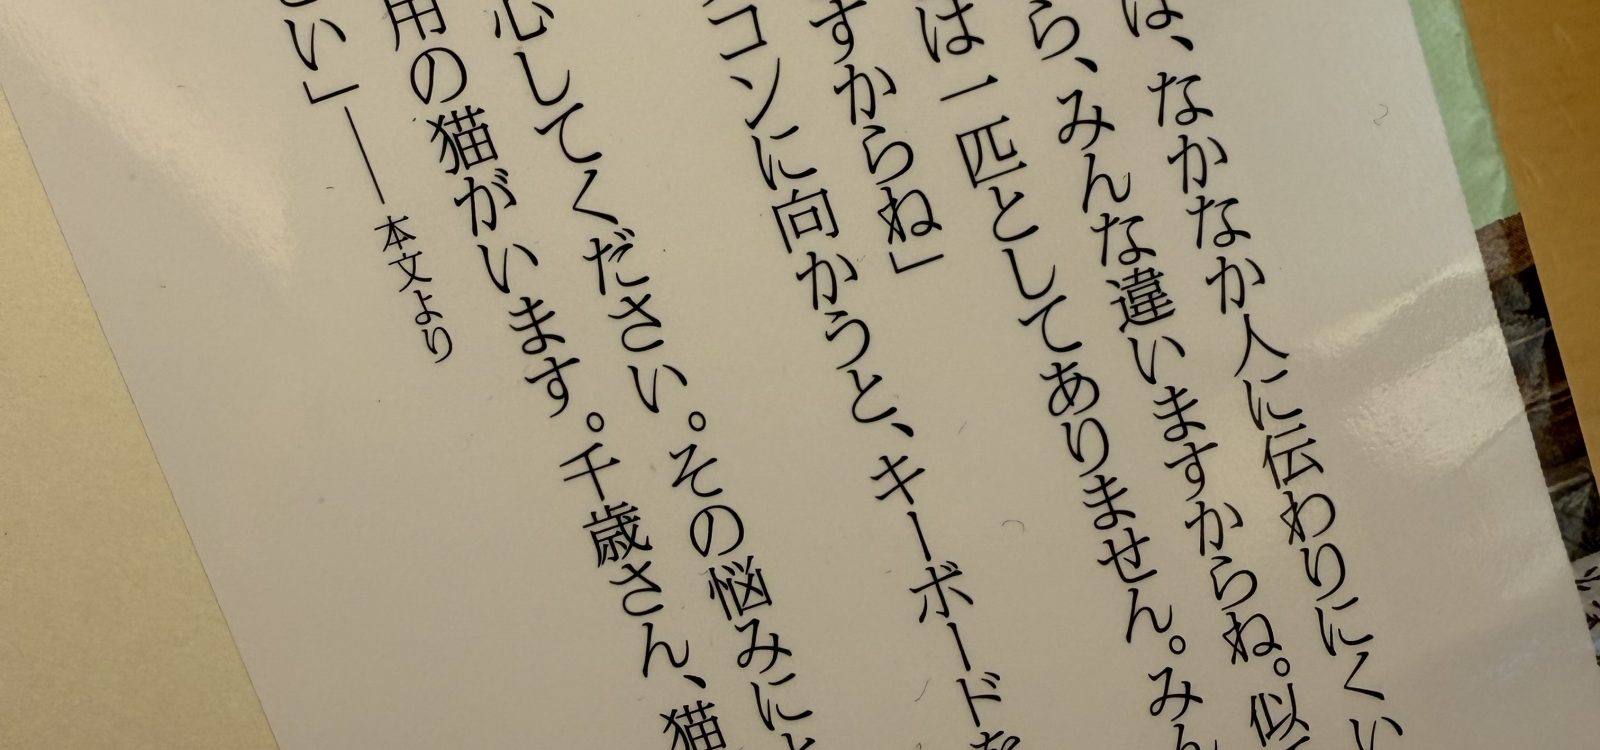 は、なかなか人に伝わりにくい
ら、みんな違いますからね。似
は一匹としてありません。みん
すからね」
コンに向かうと、キーボードを
心してください。その悩みに
用の猫がいます。千歳さん、猫
い」――本文より